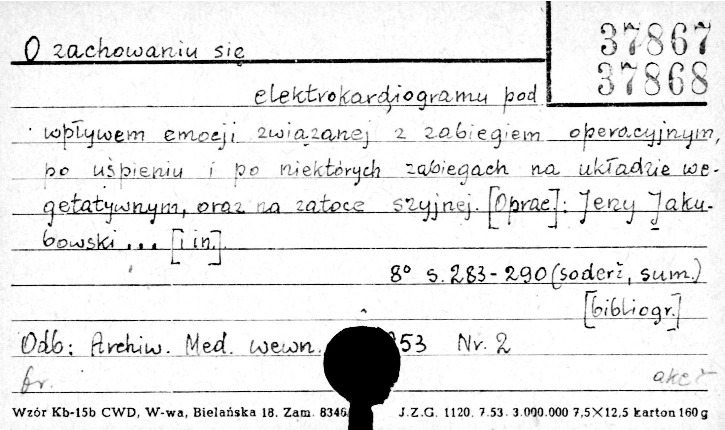 37867
37868
O zachowaniu się
elektrokardiogramu pod
wpływem emocji związanej z zabiegiem operacyjnym,
po uśpieniu i po niektórych zabiegach na układzie we-
getatywnym, oraz na zatoce szyjnej. [Oprac]: Jerzy Jaku-
bowski ... [i in.]
8° s. 283-290 (soderž, sum.)
[bibliogr.]
Odb: Archiw. Med. wewn. 953 Nr. 2
fr. akc
Wzór Kb-15b CWD, W-wa, Bielańska 18. Zam. 8346 J.Z.G. 1120. 7.53. 3.000.000 7,5×12,5 karton 160 g